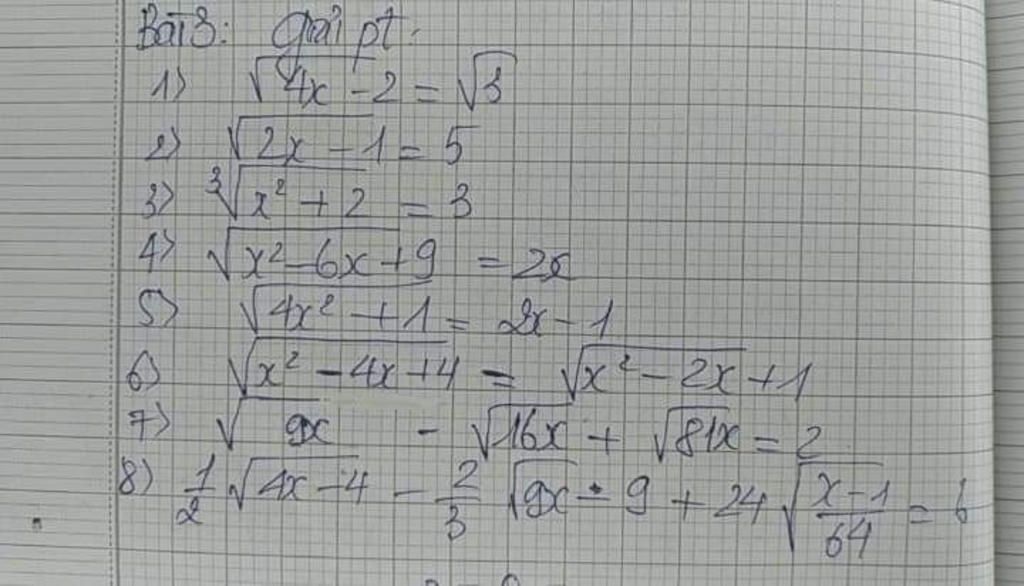 Bài 3: Giải pt:
1) √4x - 2 = √3
2) √2x - 1 = 5
3) ³√x² + 2 = 3
4) √x² - 6x + 9 = 2x
5) √4x² + 1 = 2x - 1
6) √x² - 4x + 4 = √x² - 2x + 1
7) √9x - √16x + √81x = 2
8) 1/2 √4x - 4 - 2/3 √9x - 9 + 24 √x - 1/64 =